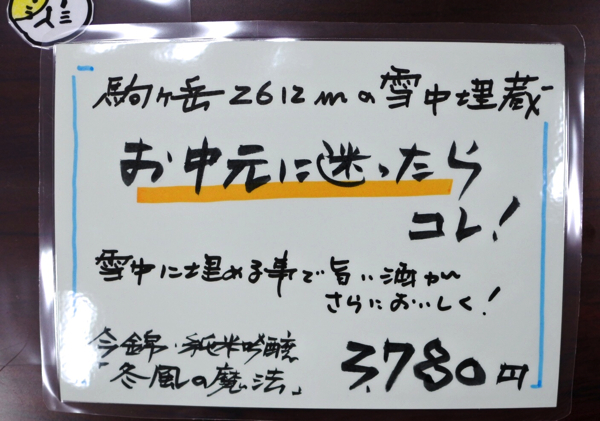 駒ヶ岳2612mの雪中埋蔵
お中元に迷ったら
コレ!
雪中に埋める事で旨い酒が
さらにおいしく!
今錦・純米吟醸
「冬風の魔法」
3,780円